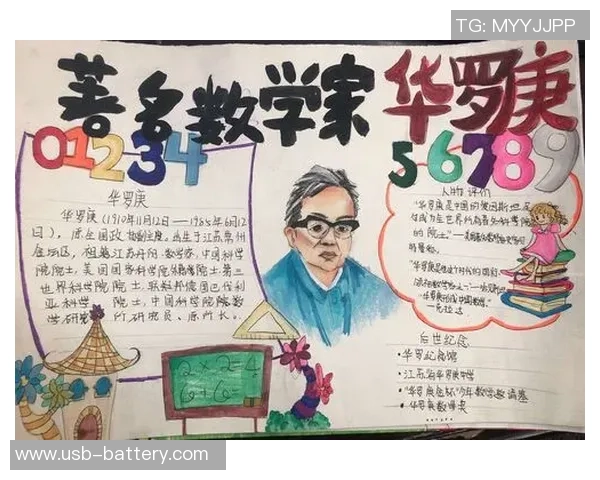 TG: MYYJJPP
著名数学家 华罗庚
01234
56789
华罗庚
华罗庚(1910年11月12日——1985年6月12
日),原全国政协副主席。出生于江苏常州
金坛区,祖籍江苏丹阳。数学家,中国科学
院院士,美国国家科学院外籍院士,第三
世界科学院院士,联邦德国巴伐利
亚科学院院士,中国科学院数
学研究所研究员、原所长。
2×2=4
6+6=
人物评价
"华罗庚是中国的爱因斯坦,足
够成为全世界所有著名科学院
的院士。"
后世纪念
·华罗庚纪念馆
·江苏省华罗庚中学
·"华罗庚金杯"少年数学邀请赛
·华罗庚数学奖
www.usb-battery.com